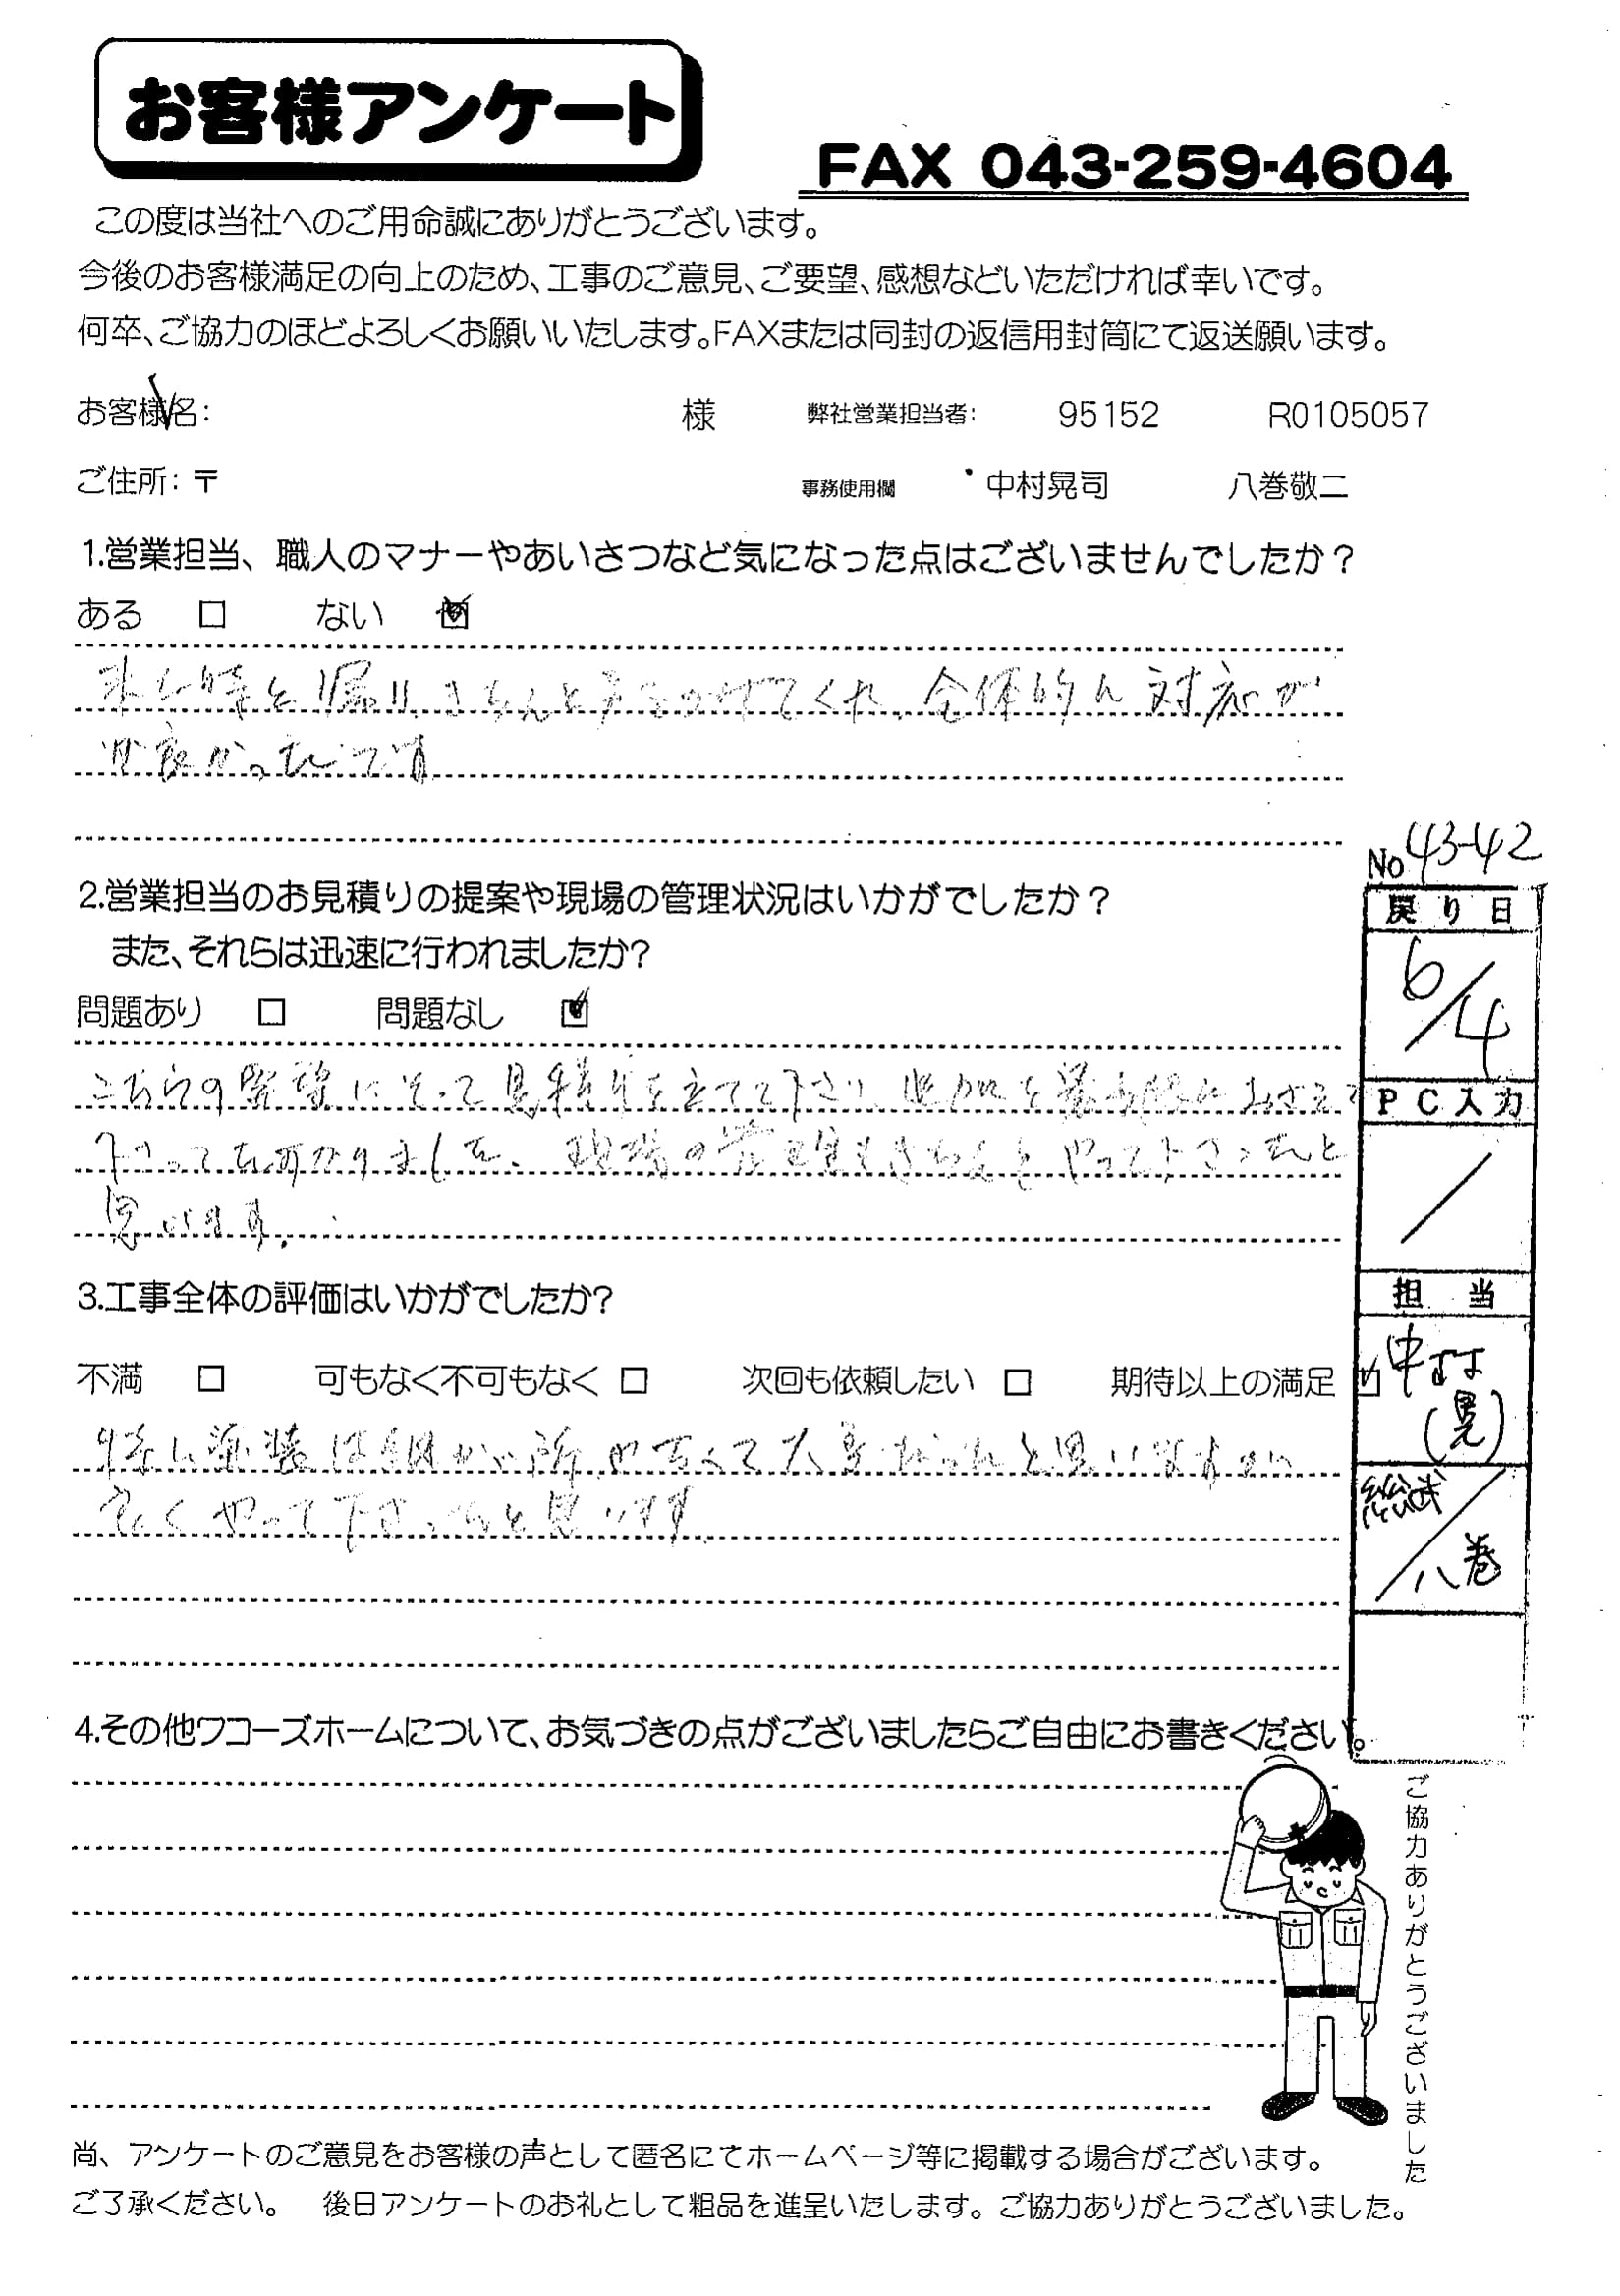 お客様アンケート
FAX 043-259-4604
この度は当社へのご用命誠にありがとうございます。
今後のお客様満足の向上のため、工事のご意見、ご要望、感想などいただければ幸いです。
何卒、ご協力のほどよろしくお願いいたします。FAXまたは同封の返信用封筒にて返送願います。
お客様名: 様 弊社営業担当者: 95152 R0105057
ご住所: 〒 事務使用欄 中村晃司 八巻敬二
1.営業担当、職人のマナーやあいさつなど気になった点はございませんでしたか?
ある □ ない ☑
来た時と帰り、きちんと声をかけてくれ、全体的に対応が
良かったです
No 43-42
2.営業担当のお見積りの提案や現場の管理状況はいかがでしたか?
また、それらは迅速に行われましたか?
戻り日
6/4
問題あり □ 問題なし ☑
こちらの希望にそって見積りを立てて下さり、追加を最小限におさえて
下さってたすかりました、現場の管理もきちんとやって下さったと
思います。
PC入力
/
3.工事全体の評価はいかがでしたか?
担当
中村
(晃)
不満 □ 可もなく不可もなく □ 次回も依頼したい □ 期待以上の満足 ☑
特に塗装は細かい所が多くて大変だったと思いますが
良くやって下さったと思います
/八巻
4.その他ワコーズホームについて、お気づきの点がございましたらご自由にお書きください。
ご協力ありがとうございました
尚、アンケートのご意見をお客様の声として匿名にてホームページ等に掲載する場合がございます。
ご了承ください。 後日アンケートのお礼として粗品を進呈いたします。ご協力ありがとうございました。